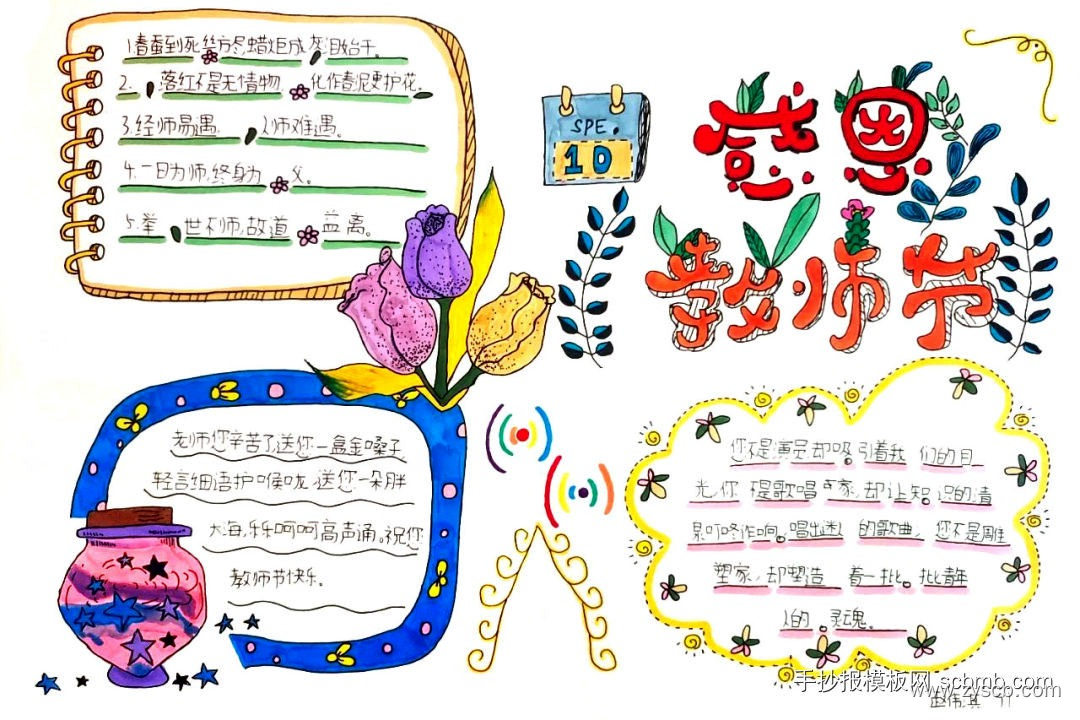 1.春蚕到死丝方尽蜡炬成灰泪始干。
2. 落红不是无情物 化作春泥更护花。
3.经师易遇, 人师难遇。
4.一日为师,终身为 父。
5.举 世不师,故道 益离。
SPE.
10
感恩
教师节
老师您辛苦了,送您一盒金嗓子
轻言细语护喉咙,送您一朵胖
大海,乐乐呵呵高声诵,祝您
教师节快乐。
您不是演员,却吸引着我们的目
光,您 是歌唱家,却让知识的清
泉叮咚作响,唱出迷人的歌曲,您不是雕
塑家,却塑造 着一批批青年
人的灵魂。
手抄报模板网 scbmb.com
www.zyscb.com